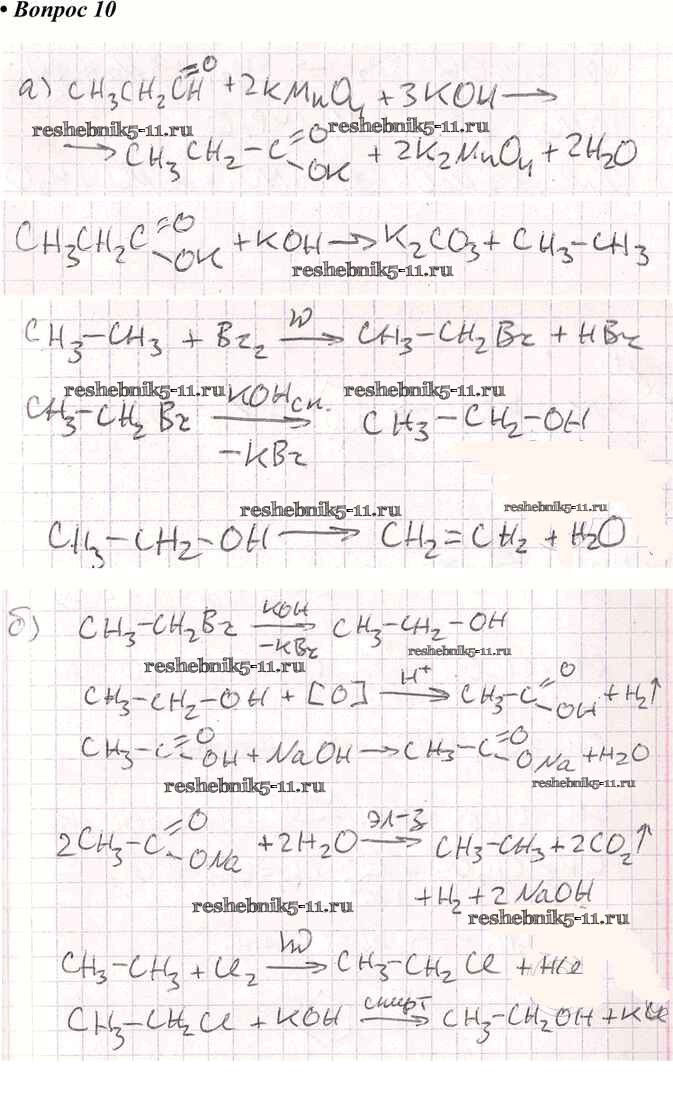 • Вопрос 10
а) CH3CH2CH=O + 2KMnO4 + 3KOH →
reshebnik5-11.ru reshebnik5-11.ru
→ CH3CH2-C=O-OK + 2K2MnO4 + 2H2O
CH3CH2C=O-OK + KOH → K2CO3 + CH3-CH3
reshebnik5-11.ru
CH3-CH3 + Br2 →hν CH3-CH2Br + HBr
reshebnik5-11.ru reshebnik5-11.ru
CH3-CH2Br →KOHсп. -KBr CH3-CH2-OH
reshebnik5-11.ru reshebnik5-11.ru
CH3-CH2-OH → CH2=CH2 + H2O
б) CH3-CH2Br →KOH -KBr CH3-CH2-OH
reshebnik5-11.ru reshebnik5-11.ru
CH3-CH2-OH + [O] →H+ CH3-C=O-OH + H2↑
CH3-C=O-OH + NaOH → CH3-C=O-ONa + H2O
reshebnik5-11.ru reshebnik5-11.ru
2CH3-C=O-ONa + 2H2O →эл-з CH3-CH3 + 2CO2↑
+ H2 + 2NaOH
reshebnik5-11.ru reshebnik5-11.ru
CH3-CH3 + Cl2 →hν CH3-CH2Cl + HCl
CH3-CH2Cl + KOH →спирт CH3-CH2OH + KCl